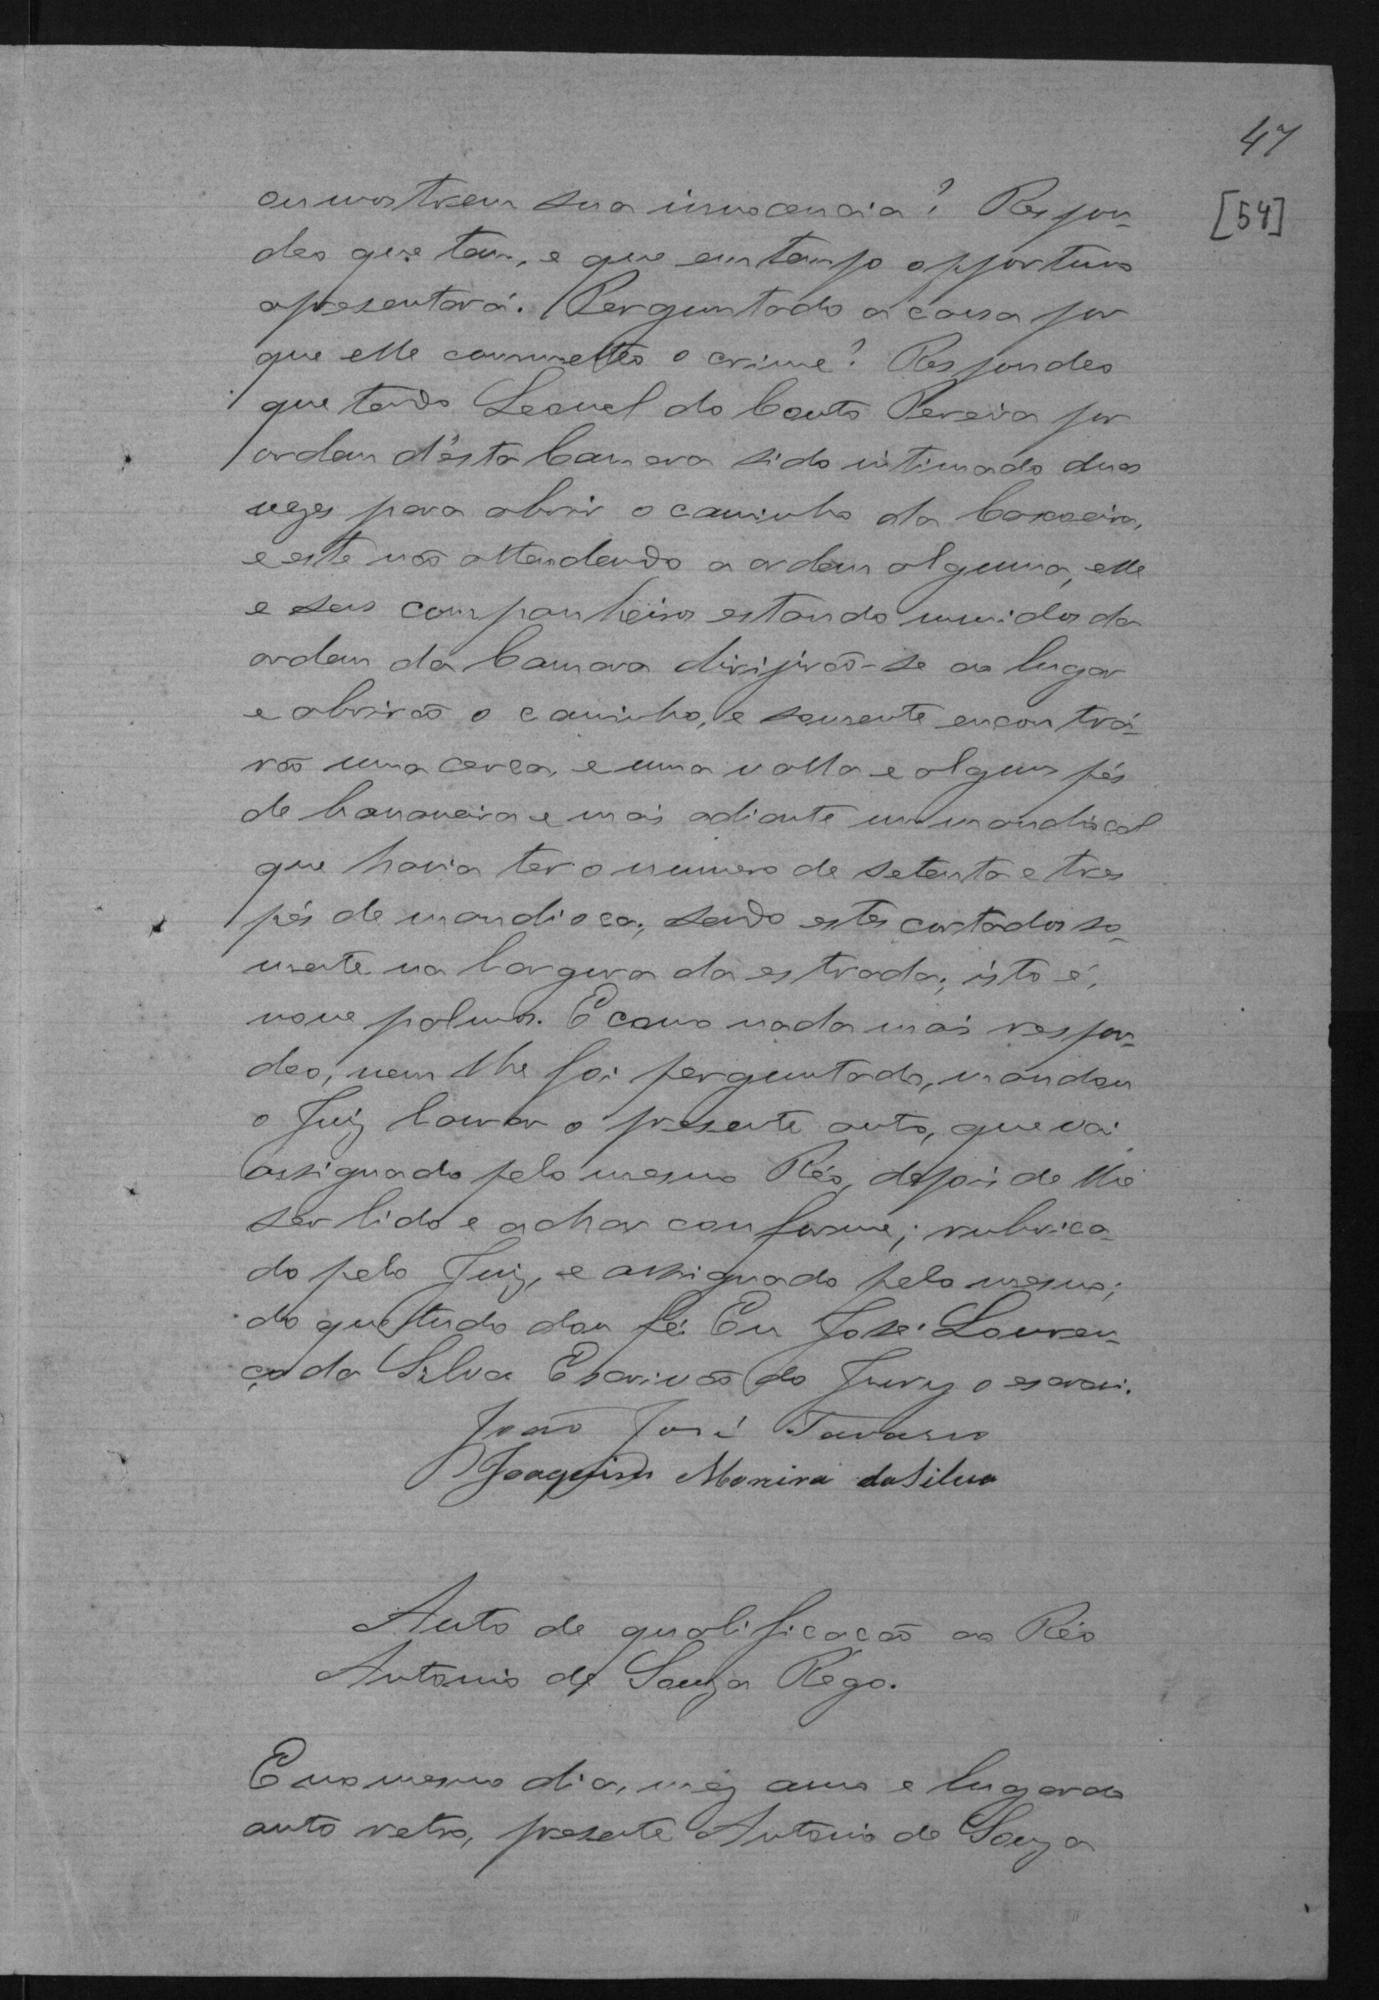 47
[54]
ou mostrem sua innocencia? Respon-
deo que tem, e que em tempo opportuno
apresentará. Perguntado a causa por
que elle commetteo o crime? Respondeo
que tendo Leonel do Couto Pereira por
ordem d'ésta Camara sido intimado duas
vezes para abrir o caminho da Caxoeira,
e este não attendendo a ordem alguma, elle
e seus companheiros estando munidos da
ordem da Camara dirijirão-se ao lugar
e abrirão o caminho, e somente encontrá-
rão uma cerca, e uma valla e algum pés
de bananeira e mais adiante um mandiocal
que havia ter o numero de setenta e tres
pés de mandioca; sendo estes cortados so-
mente na largura da estrada; isto é,
nove palmos. E como nada mais respon-
deo, nem lhe foi perguntado, mandou
o Juiz lavrar o presente auto, que vai
assignado pelo mesmo Réo, depois de lhe
ser lido e achar conforme; rubrica-
do pelo Juiz, e assignado pelo mesmo;
do que tudo dou fé. Eu José Louren-
ço da Silva Escrivão do Jury o escrevi.
João José Tavares
Joaquim Moreira da Silva
Auto de qualificação ao Réo
Antonio de Souza Rêgo.
E no mesmo dia, mez anno e lugar do
auto retro, presente Antonio de Souza